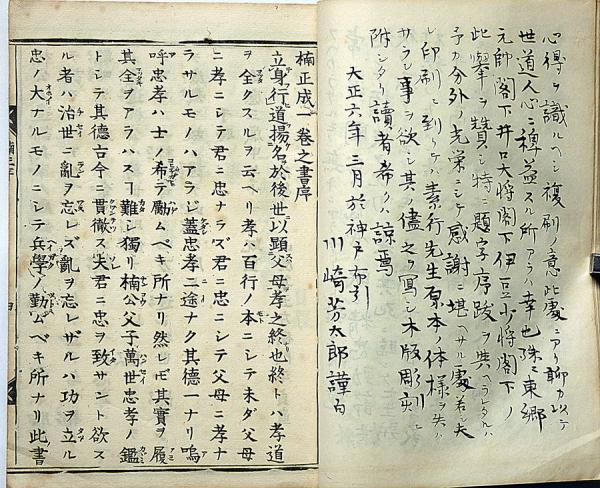 心得ヲ識ルヘシ複刻ノ意此處ニアリ聊カ以テ
世道人心ニ裨益スル所アラハ幸也殊ニ東郷
元帥閣下井口大将閣下伊豆少将閣下ノ
此擧ヲ賛シ特ニ題字序跋ヲ典ヘラレタルハ
予カ分外ノ光榮ニシテ感謝ニ堪ヘサル處若夫
レ印刷ニ到リテハ素行先生原本ノ体様ヲ失ハ
サラン事ヲ欲シ其ノ儘之ヲ寫シ木版彫刻ニ
附シタリ讀者希クハ諒焉
大正六年三月於神戸布引
川崎芳太郎謹白
楠正成一巻之書序
立身行道揚名於後世以顕父母孝之終也終トハ孝道
ヲ全クスルヲ云ヘリ孝ハ百行ノ本ニシテ未ダ父母
ニ孝ニシテ君ニ忠ナラズ君ニ忠ニシテ父母ニ孝ナ
ラサルモノハアラジ蓋忠孝二途ナク其德一ナリ嗚
呼忠孝ハ士ノ希テ勵ムベキ所ナリ然レモ其實ヲ履
其全ヲアラハス難シ獨リ楠公父子萬世忠孝ノ鑑
トシテ其德古今ニ貫徹ス夫君ニ忠ヲ致サント欲ス
ル者ハ治世ニ亂ヲ忘レズ亂ヲ忘レザルハ功ヲ立ル
忠ノ大ナルモノニシテ兵學ノ勤ムベキ所ナリ此書